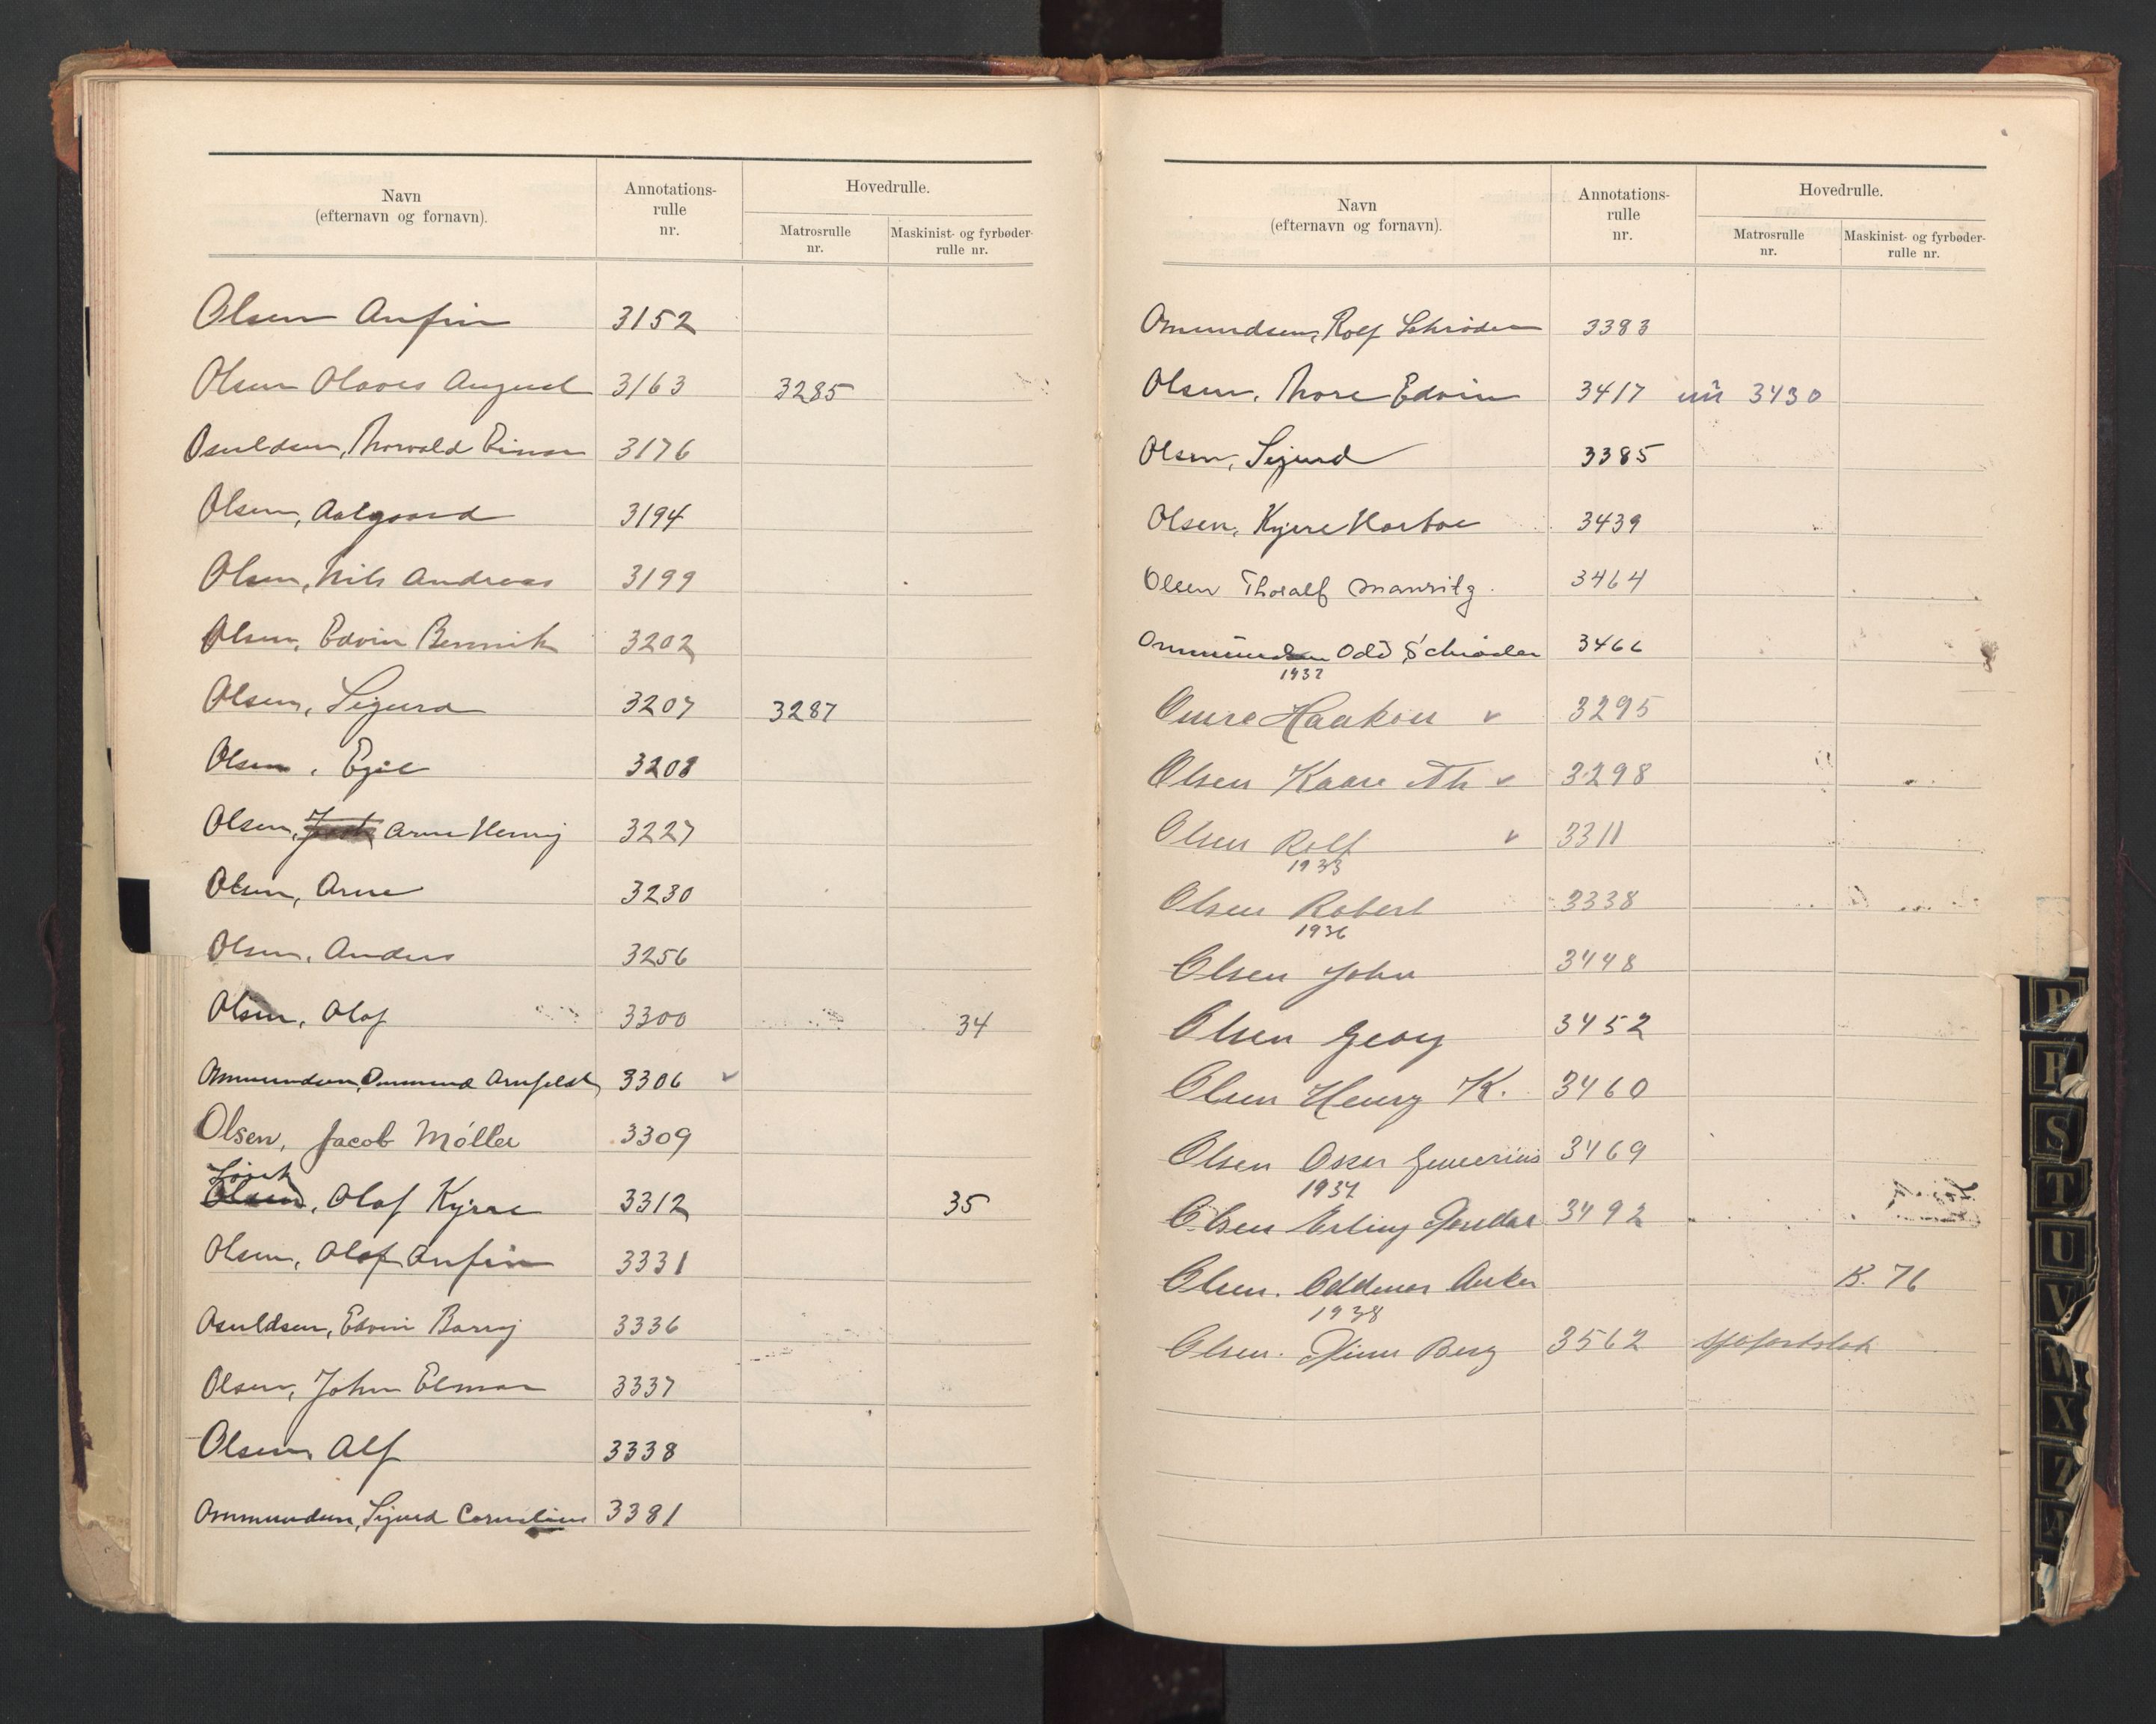 Navn
(efternavn og fornavn).
Annotations-
rulle
nr.
Hovedrulle.
Matrosrulle
nr.
Maskinist- og fyrbøder-
rulle nr.
Olsen Anfin 3152
Olsen Olaves August 3163 3285
Osuldsen, Thorvald Einar 3176
Olsen, Aalgaard 3194
Olsen, Nils Andreas 3199
Olsen, Edvin Bernnik 3202
Olsen, Sigurd 3207 3287
Olsen, Egil 3208
Olsen, Arne Henry 3227
Olsen, Arne 3230
Olsen, Anders 3256
Olsen, Olaf 3300 34
Ommundsen, Ommund Arnfeldt 3306 ✓
Olsen, Jacob Møller 3309
Olsen, Olaf Kyrre 3312 35
Olsen, Olaf Anfin 3331
Osuldsen, Edvin Barry 3336
Olsen, John Elmar 3337
Olsen, Alf 3338
Ommundsen, Sigurd Cornelius 3381
Navn
(efternavn og fornavn).
Annotations-
rulle
nr.
Hovedrulle.
Matrosrulle
nr.
Maskinist- og fyrbøder-
rulle nr.
Omundsen, Rolf Schrøder 3383
Olsen, Thore Edvin 3417 3430
Olsen, Sigurd 3385
Olsen, Kyrre Harboe 3439
Olsen Thoralf Mauritz. 3464
Ommundsen Odd Schrøder 3466
1932
Omre Haakon ✓ 3295
Olsen Kaare Th ✓ 3298
Olsen Rolf ✓ 3311
1933
Olsen Robert 3338
1936
Olsen John 3448
Olsen Georg 3452
Olsen Henry K. 3460
Olsen Oscar 3469
1937
Olsen Erling 3492
Olsen. Oddmar Anker K. 76
1938
Olsen. Finn Berg 3562
P
R
S
T
U
V
W
X
Z